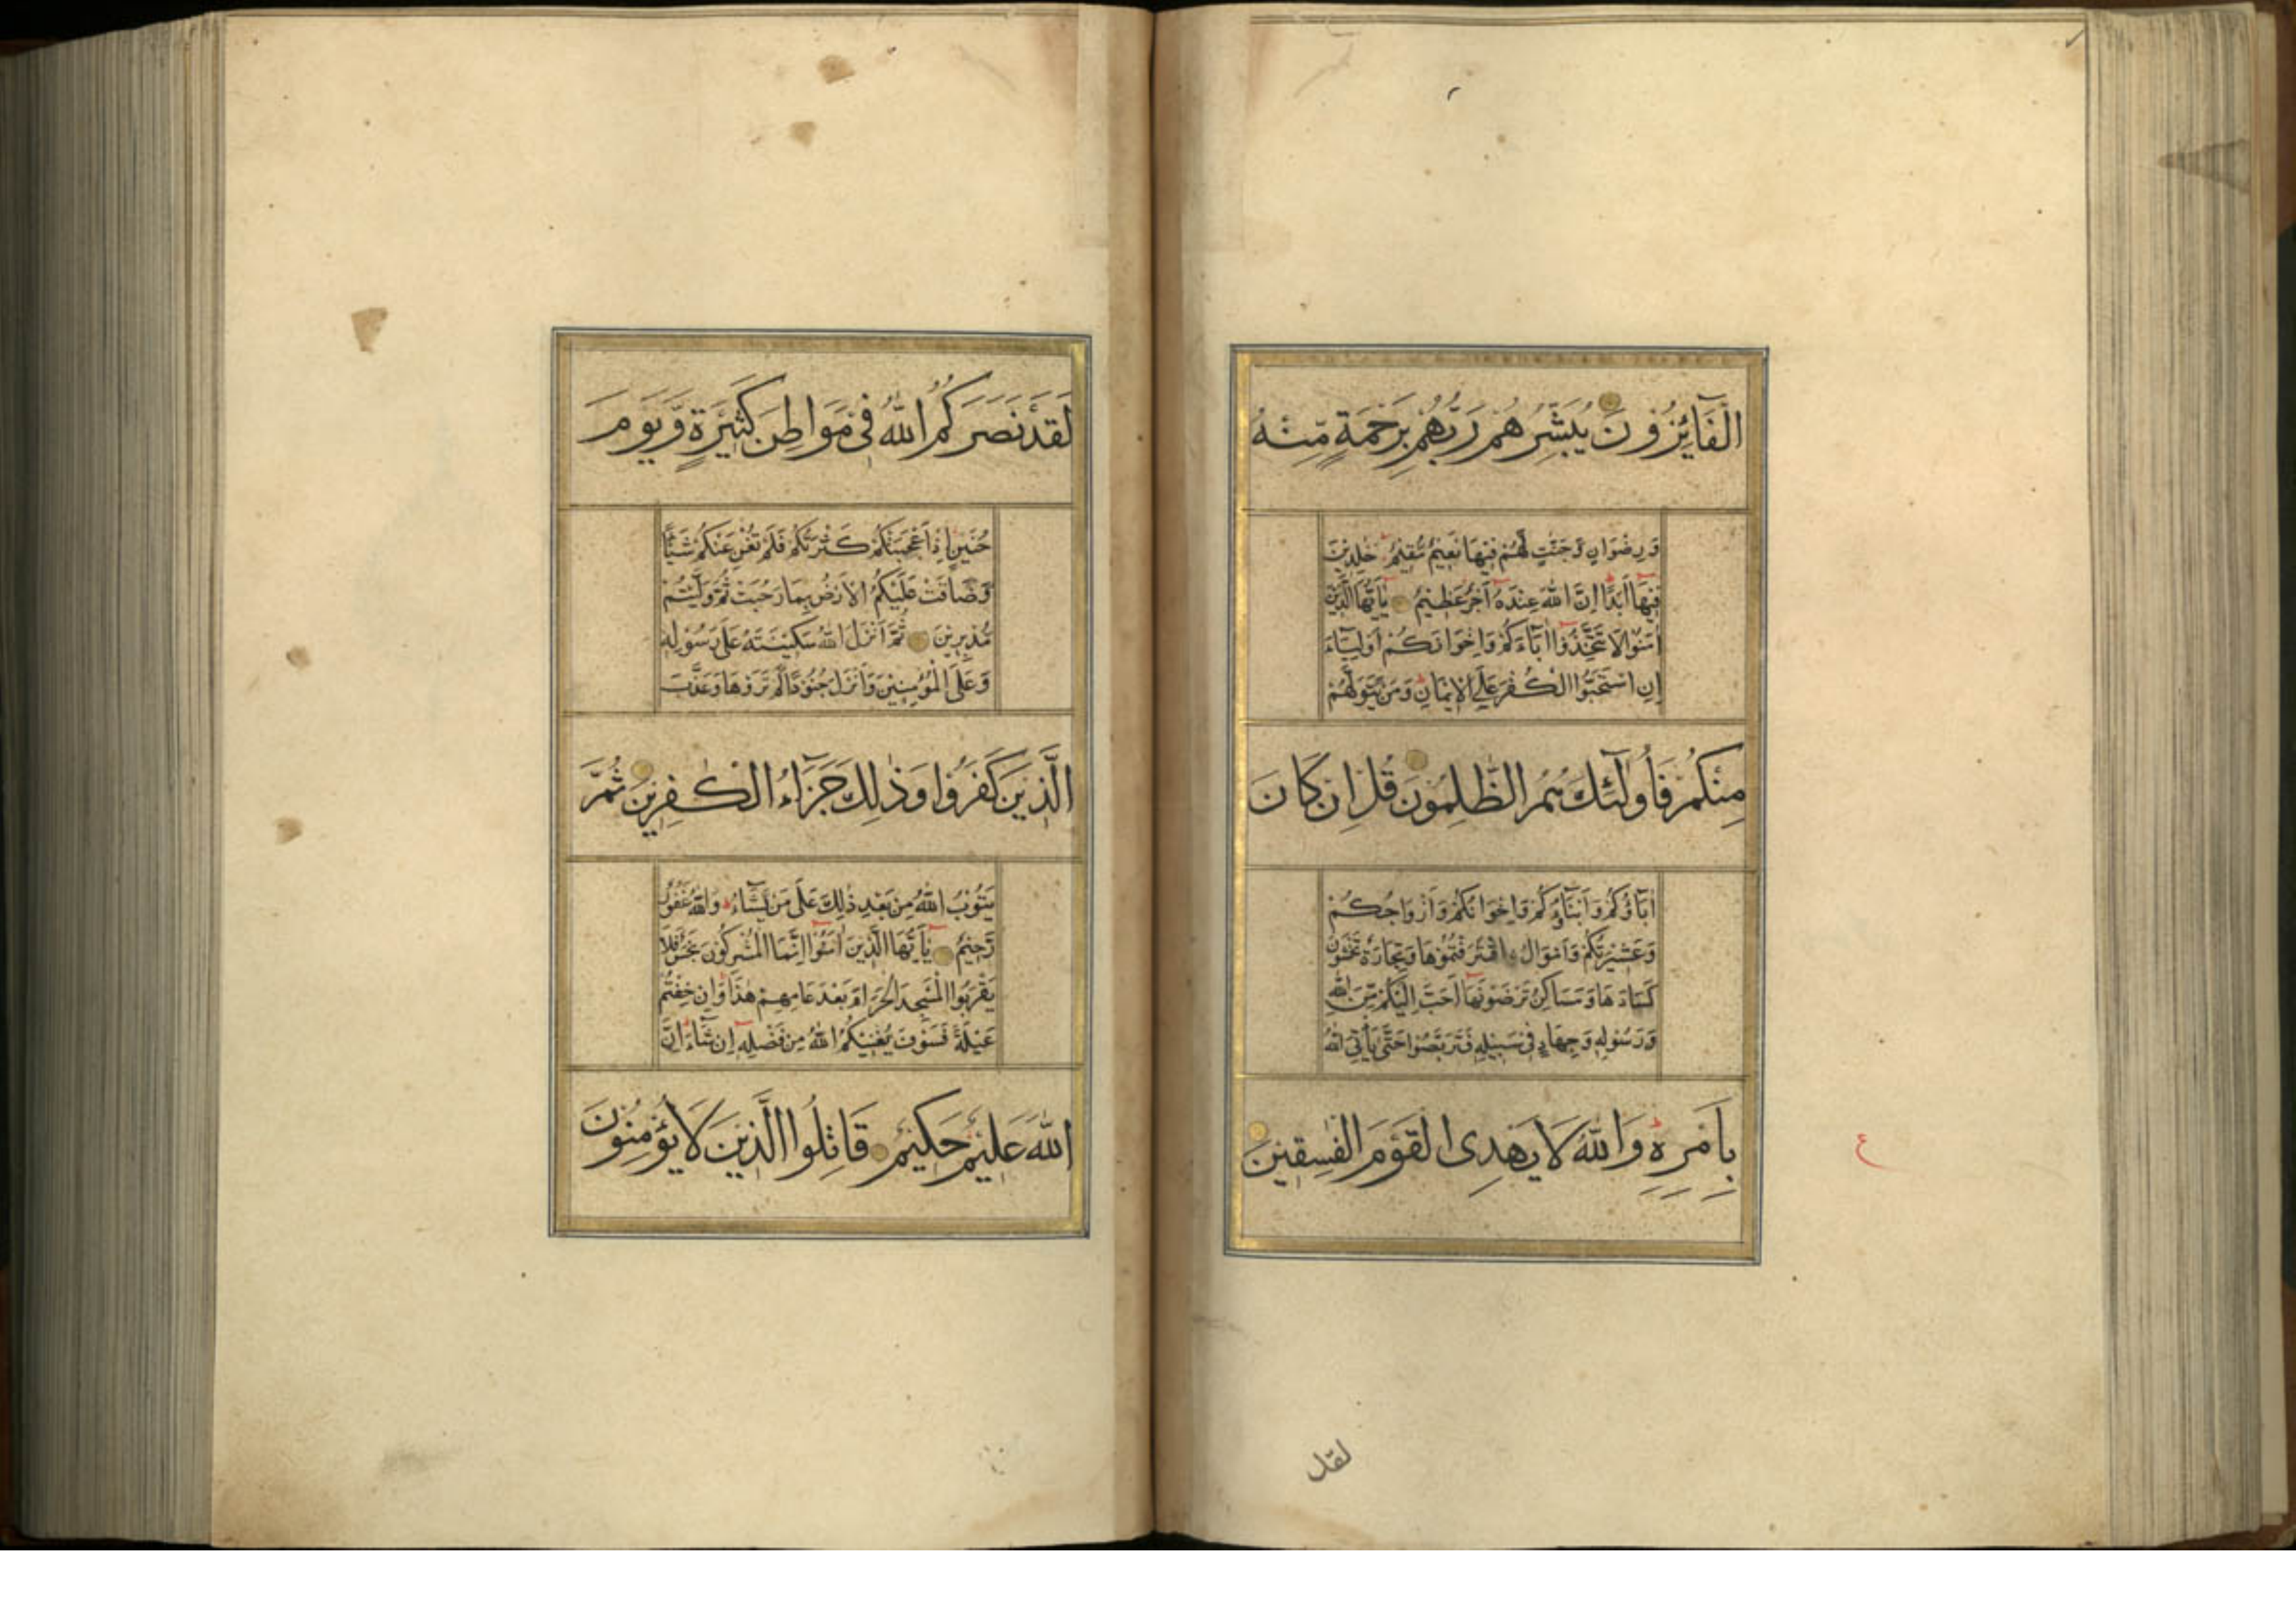 الْفَآئِزُونَ يُبَشِّرُهُمْ رَبُّهُمْ بِرَحْمَةٍ مِّنْهُ
وَرِضْوَانٍ وَّجَنّٰتٍ لَّهُمْ فِيْهَا نَعِيْمٌ مُّقِيْمٌ خٰلِدِيْنَ
فِيْهَآ اَبَدًا اِنَّ اللّٰهَ عِنْدَهٗٓ اَجْرٌ عَظِيْمٌ يٰٓاَيُّهَا الَّذِيْنَ
اٰمَنُوْا لَا تَتَّخِذُوْٓا اٰبَآءَكُمْ وَاِخْوَانَكُمْ اَوْلِيَآءَ
اِنِ اسْتَحَبُّوا الْكُفْرَ عَلَى الْاِيْمَانِ وَمَنْ يَّتَوَلَّهُمْ
مِنْكُمْ فَاُولٰٓئِكَ هُمُ الظّٰلِمُوْنَ قُلْ اِنْ كَانَ
اٰبَآؤُكُمْ وَاَبْنَآؤُكُمْ وَاِخْوَانُكُمْ وَاَزْوَاجُكُمْ
وَعَشِيْرَتُكُمْ وَاَمْوَالُ ۨاقْتَرَفْتُمُوْهَا وَتِجَارَةٌ تَخْشَوْنَ
كَسَادَهَا وَمَسَاكِنُ تَرْضَوْنَهَآ اَحَبَّ اِلَيْكُمْ مِّنَ اللّٰهِ
وَرَسُوْلِهٖ وَجِهَادٍ فِيْ سَبِيْلِهٖ فَتَرَبَّصُوْا حَتّٰى يَاْتِيَ اللّٰهُ
بِاَمْرِهٖ وَاللّٰهُ لَا يَهْدِى الْقَوْمَ الْفٰسِقِيْنَ
ع
لقد
لَقَدْ نَصَرَكُمُ اللّٰهُ فِيْ مَوَاطِنَ كَثِيْرَةٍ وَّيَوْمَ
حُنَيْنٍ اِذْ اَعْجَبَتْكُمْ كَثْرَتُكُمْ فَلَمْ تُغْنِ عَنْكُمْ شَيْـًٔا
وَّضَاقَتْ عَلَيْكُمُ الْاَرْضُ بِمَا رَحُبَتْ ثُمَّ وَلَّيْتُمْ
مُّدْبِرِيْنَ ثُمَّ اَنْزَلَ اللّٰهُ سَكِيْنَتَهٗ عَلٰى رَسُوْلِهٖ
وَعَلَى الْمُؤْمِنِيْنَ وَاَنْزَلَ جُنُوْدًا لَّمْ تَرَوْهَا وَعَذَّبَ
الَّذِيْنَ كَفَرُوْا وَذٰلِكَ جَزَآءُ الْكٰفِرِيْنَ ثُمَّ
يَتُوْبُ اللّٰهُ مِنْ بَعْدِ ذٰلِكَ عَلٰى مَنْ يَّشَآءُ وَاللّٰهُ غَفُوْرٌ
رَّحِيْمٌ يٰٓاَيُّهَا الَّذِيْنَ اٰمَنُوْٓا اِنَّمَا الْمُشْرِكُوْنَ نَجَسٌ فَلَا
يَقْرَبُوا الْمَسْجِدَ الْحَرَامَ بَعْدَ عَامِهِمْ هٰذَا وَاِنْ خِفْتُمْ
عَيْلَةً فَسَوْفَ يُغْنِيْكُمُ اللّٰهُ مِنْ فَضْلِهٖٓ اِنْ شَآءَ اِنَّ
اللّٰهَ عَلِيْمٌ حَكِيْمٌ قَاتِلُوا الَّذِيْنَ لَا يُؤْمِنُوْنَ